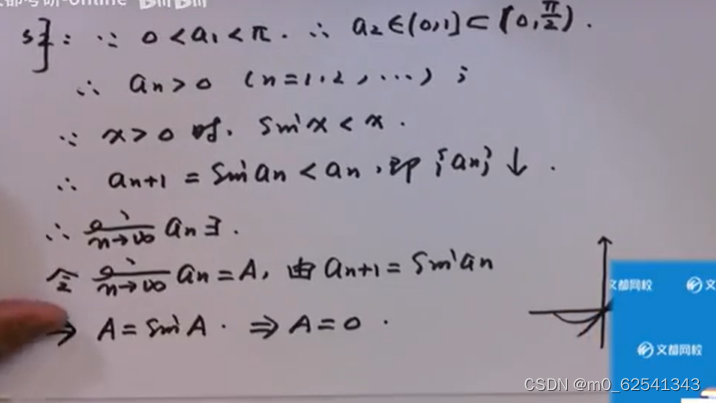 文都考研-Online bilibili
证: ∵ 0 < a₁ < π. ∴ a₂∈(0,1]⊂(0,π/2).
∴ aₙ>0 (n=1,2,⋯);
∵ x>0 时, sin x < x.
∴ aₙ₊₁ = sin aₙ < aₙ, 即 {aₙ}↓.
∴ lim n→∞ aₙ∃.
令 lim n→∞ aₙ=A, 由 aₙ₊₁ = sin aₙ
⇒ A = sin A. ⇒ A = 0.
文都网校
文
文都网校
CSDN @m0_62541343